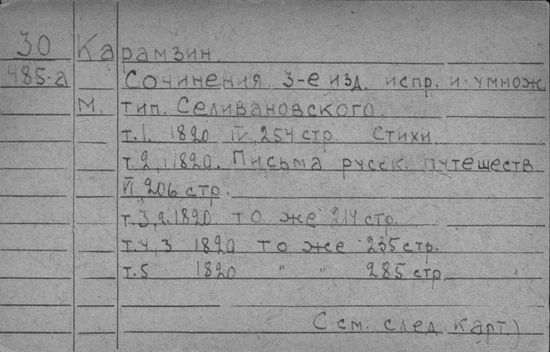 30 Карамзин.
485-а Сочинения. 3-е изд. испр. и умнож.
М. тип. Селивановского.
т.1. 1820 II, 254 стр. Стихи
т.2, 1 1820. Письма русск. путешеств.
II, 206 стр.
т.3, 2. 1820 то же 214 стр.
т.4, 3 1820 то же 235 стр.
т.5 1820 " " 285 стр.
(см. след. карт.)